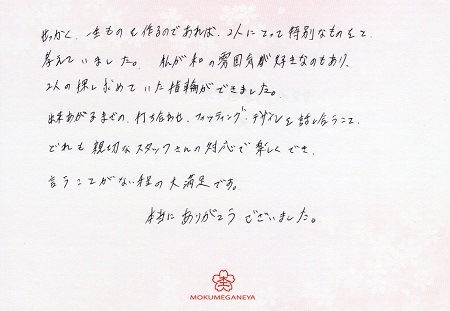 せっかく、一生ものを作るのであれば、2人にとって特別なものをと、
考えていました。私が和の雰囲気が好きなのもあり、
2人の探し求めていた指輪ができました。
出来あがるまでの、打ち合わせ、フィッティング、デザインを話し合うこと、
どれも親切なスタッフさんの対応で楽しくでき、
言うことがない程の大満足です。
本当にありがとうございました。
MOKUMEGANEYA